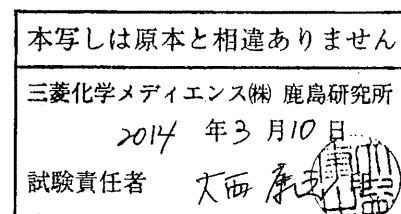 本写しは原本と相違ありません
三菱化学メディエンス㈱ 鹿島研究所
2014 年 3 月 10 日
試験責任者 大西 康